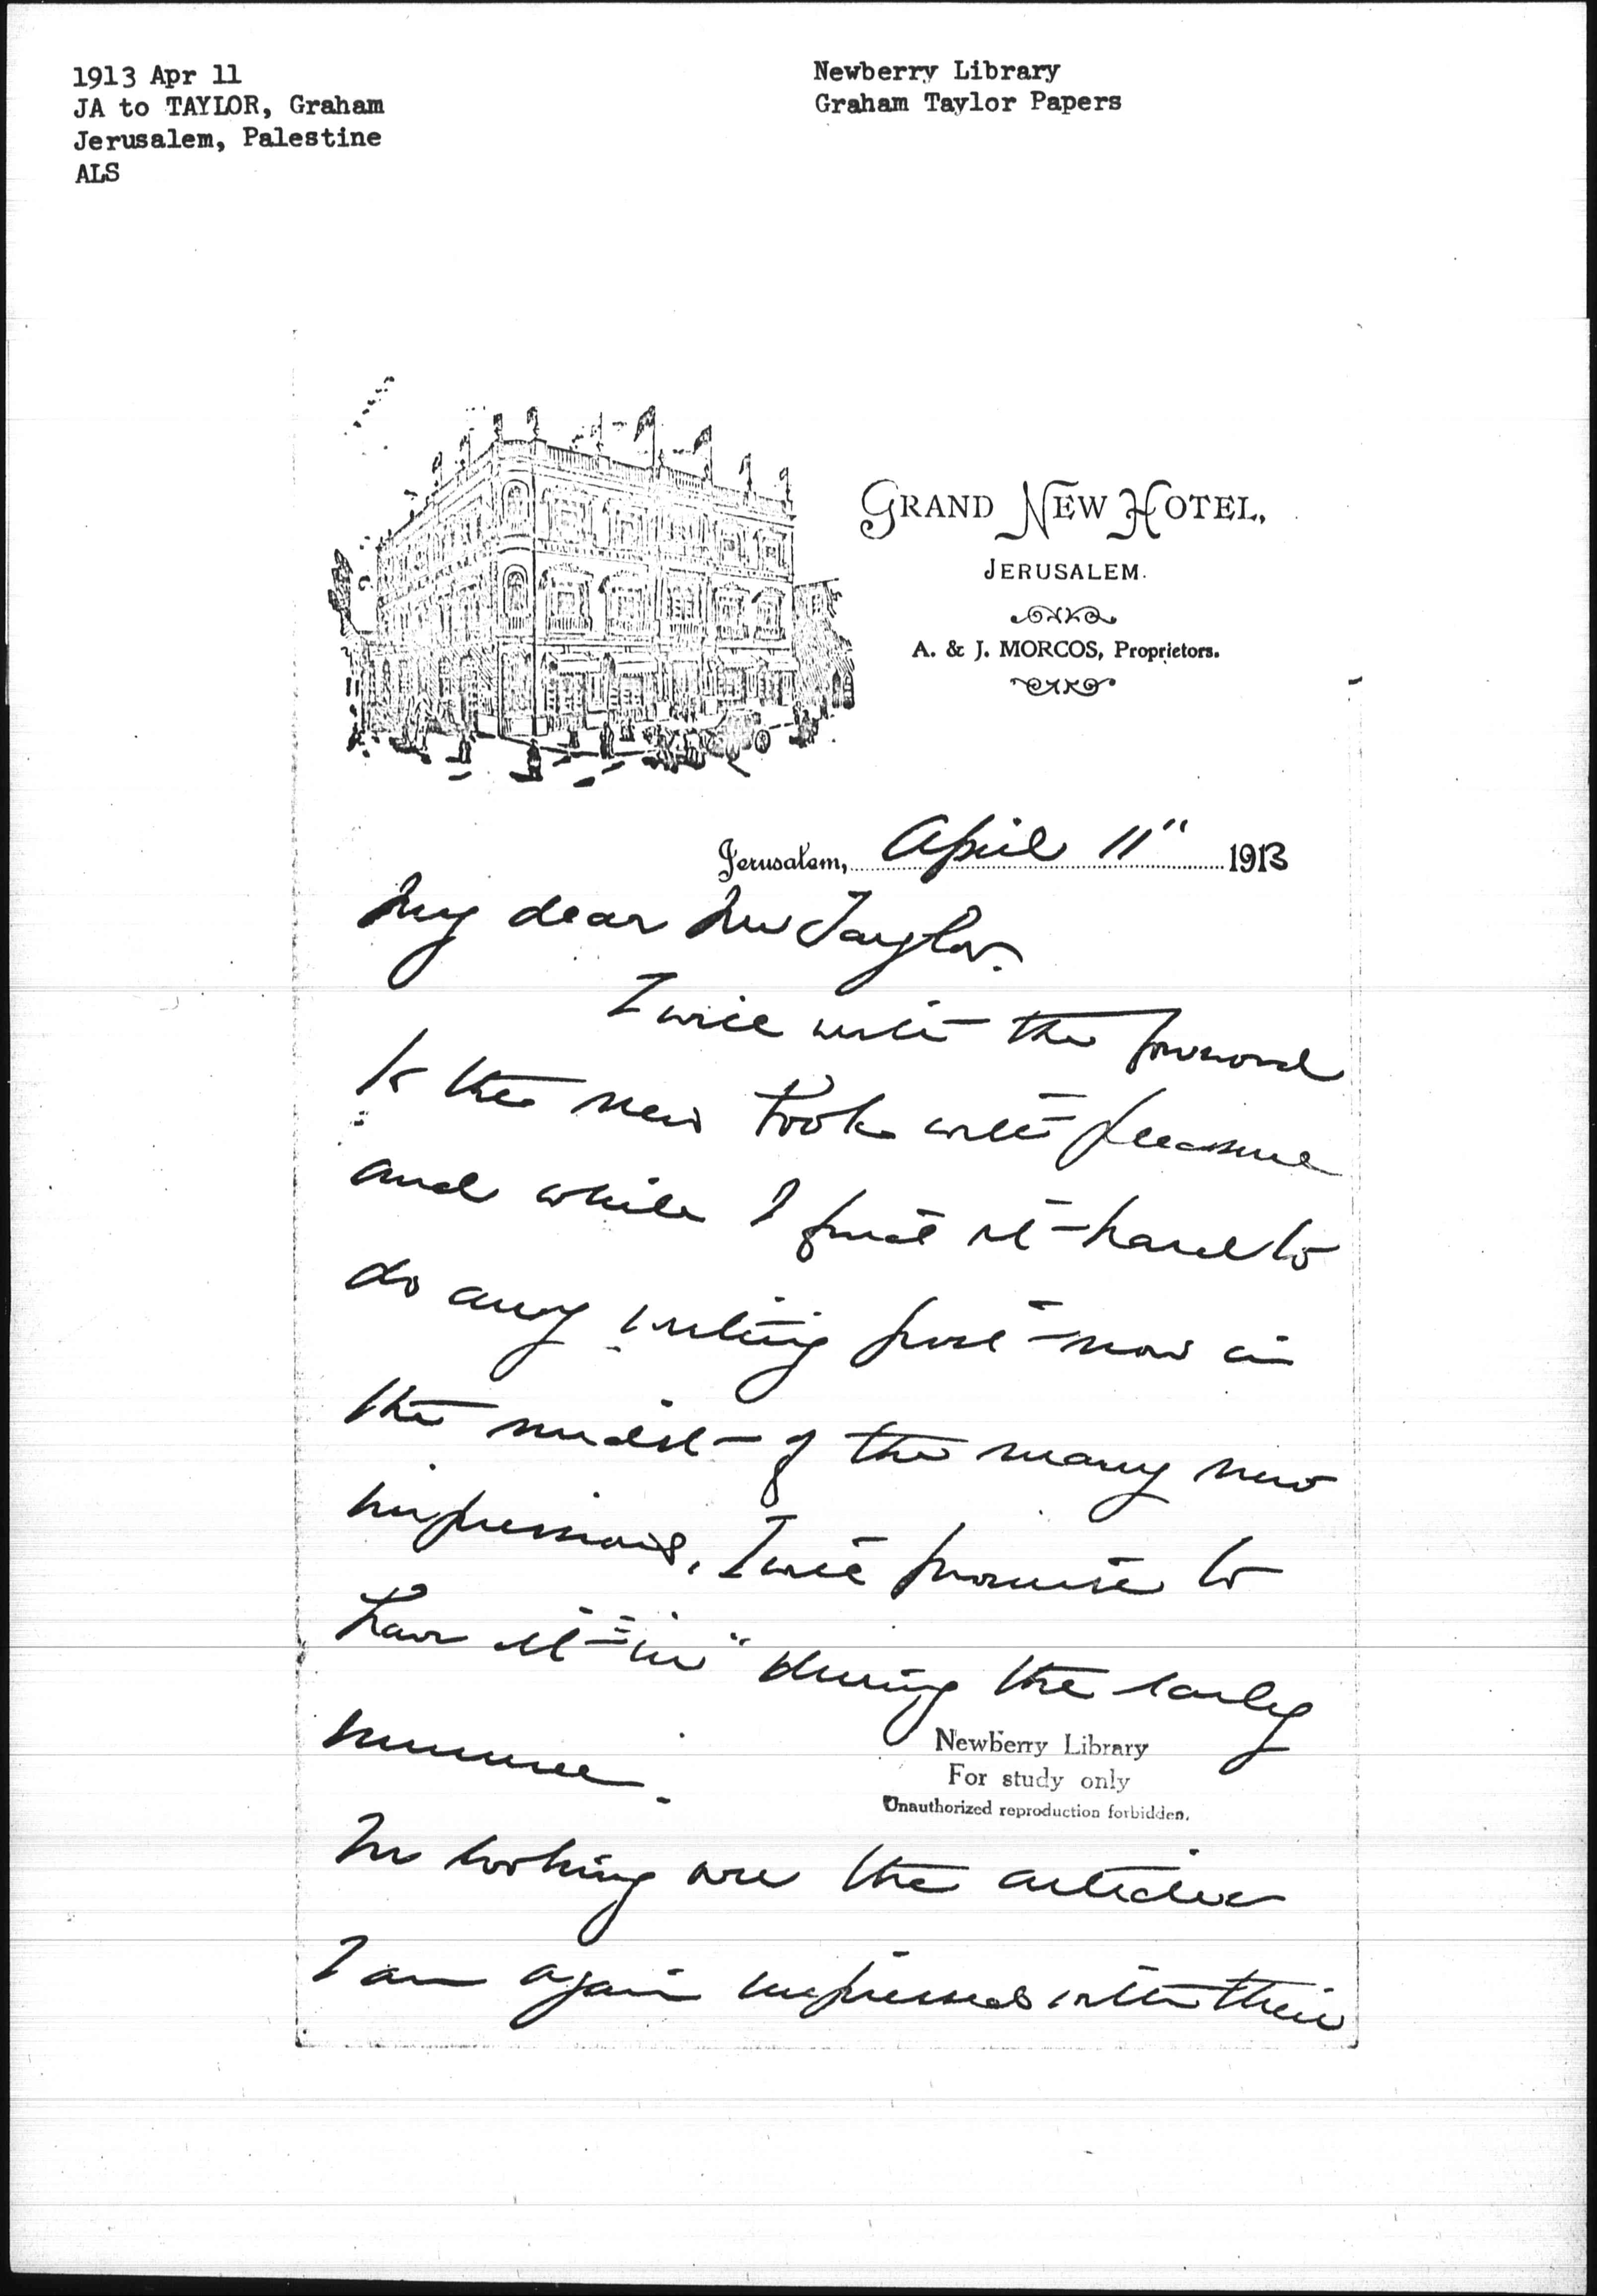 1913 Apr 11
JA to TAYLOR, Graham
Jerusalem, Palestine
ALS
Newberry Library
Graham Taylor Papers
GRAND NEW HOTEL,
JERUSALEM.
A. & J. MORCOS, Proprietors.
Jerusalem, April 11" 1913
My dear Mr Taylor.
I will write the foreword
to the new book with pleasure
and while I find it hard to
do any writing just now in
the midst of the many new
impressions, I will promise to
have it "in" during the early
summer.
Newberry Library
For study only
Unauthorized reproduction forbidden.
In looking over the articles
I am again impressed with their